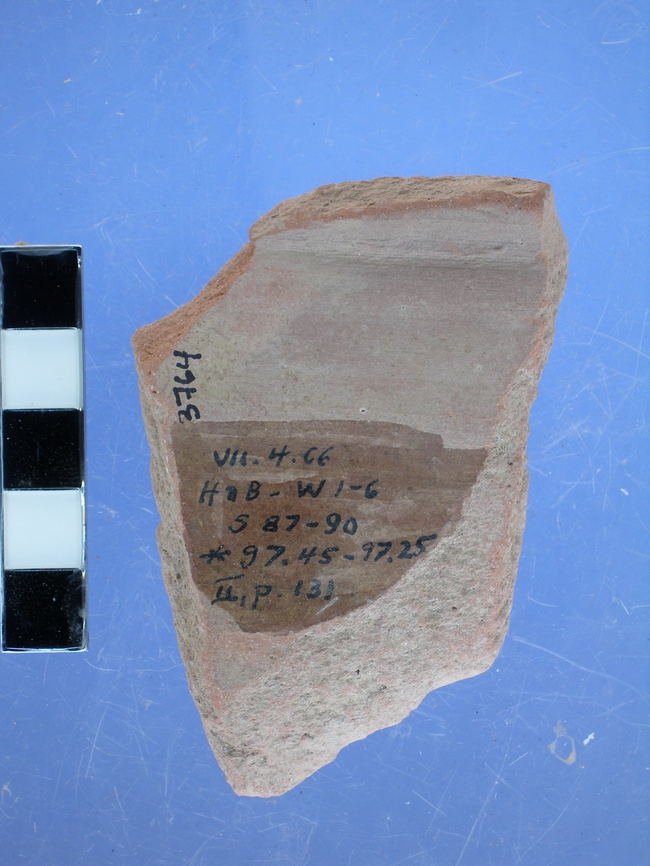 3764
VII.4.66
HoB - W 1-6
S 87-90
* 97.45-97.25
II, p. 131